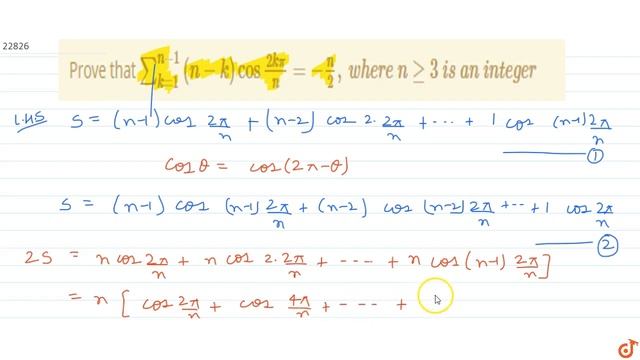 22826
Prove that ∑_{k=1}^{n-1} (n − k) cos 2kπ/n = −n/2, where n ≥ 3 is an integer
LHS S = (n-1) cos 2π/n + (n-2) cos 2. 2π/n + -- .. + 1 cos (n-1) 2π/n
①
cos θ = cos (2π-θ)
S = (n-1) cos (n-1) 2π/n + (n-2) cos (n-2) 2π/n + -.. + 1 cos 2π/n
②
2S = n cos 2π/n + n cos 2. 2π/n + ---- + n cos (n-1) 2π/n ]
= n [ cos 2π/n + cos 4π/n + - -- +
doubtnut